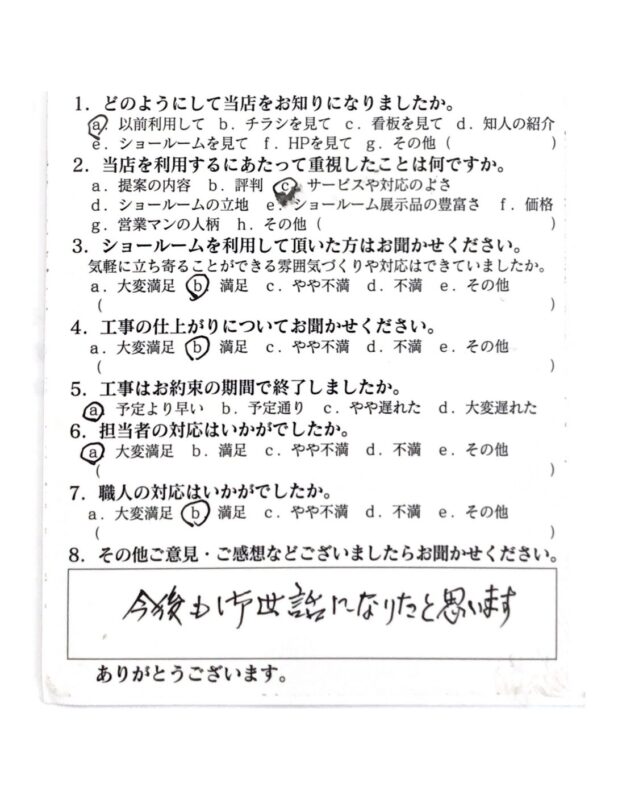 1．どのようにして当店をお知りになりましたか。
a．以前利用して b．チラシを見て c．看板を見て d．知人の紹介
e．ショールームを見て f．HPを見て g．その他（ ）
2．当店を利用するにあたって重視したことは何ですか。
a．提案の内容 b．評判 c．サービスや対応のよさ
d．ショールームの立地 e．ショールーム展示品の豊富さ f．価格
g．営業マンの人柄 h．その他（ ）
3．ショールームを利用して頂いた方はお聞かせください。
気軽に立ち寄ることができる雰囲気づくりや対応はできていましたか。
a．大変満足 b 満足 c．やや不満 d．不満 e．その他
（ ）
4．工事の仕上がりについてお聞かせください。
a．大変満足 b 満足 c．やや不満 d．不満 e．その他
（ ）
5．工事はお約束の期間で終了しましたか。
a 予定より早い b．予定通り c．やや遅れた d．大変遅れた
6．担当者の対応はいかがでしたか。
a 大変満足 b．満足 c．やや不満 d．不満 e．その他
（ ）
7．職人の対応はいかがでしたか。
a．大変満足 b 満足 c．やや不満 d．不満 e．その他
（ ）
8．その他ご意見・ご感想などございましたらお聞かせください。
今後も御世話になりたと思います
ありがとうございます。